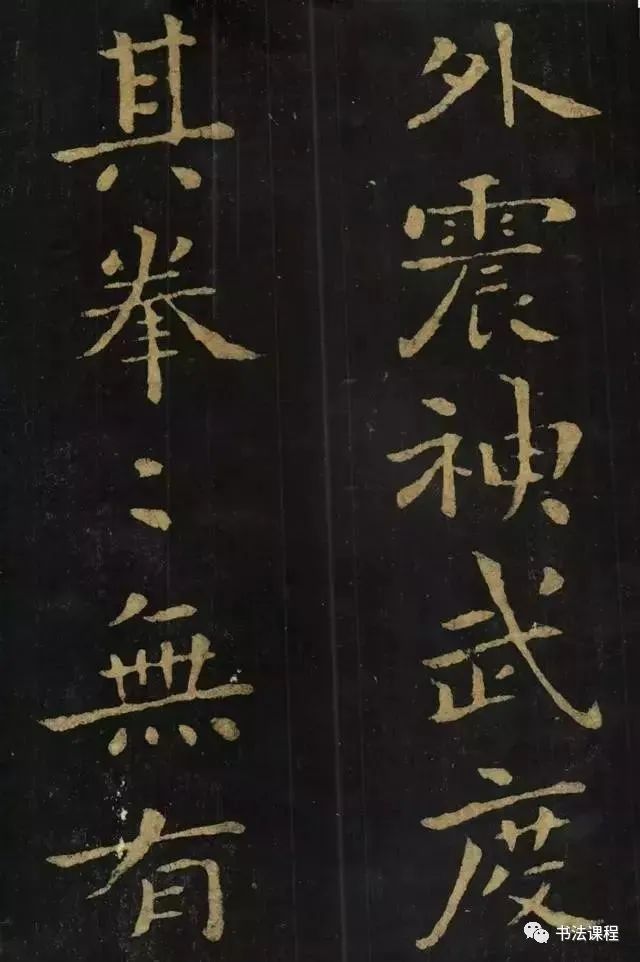 外震神武度
其拳〻無有
书法课程